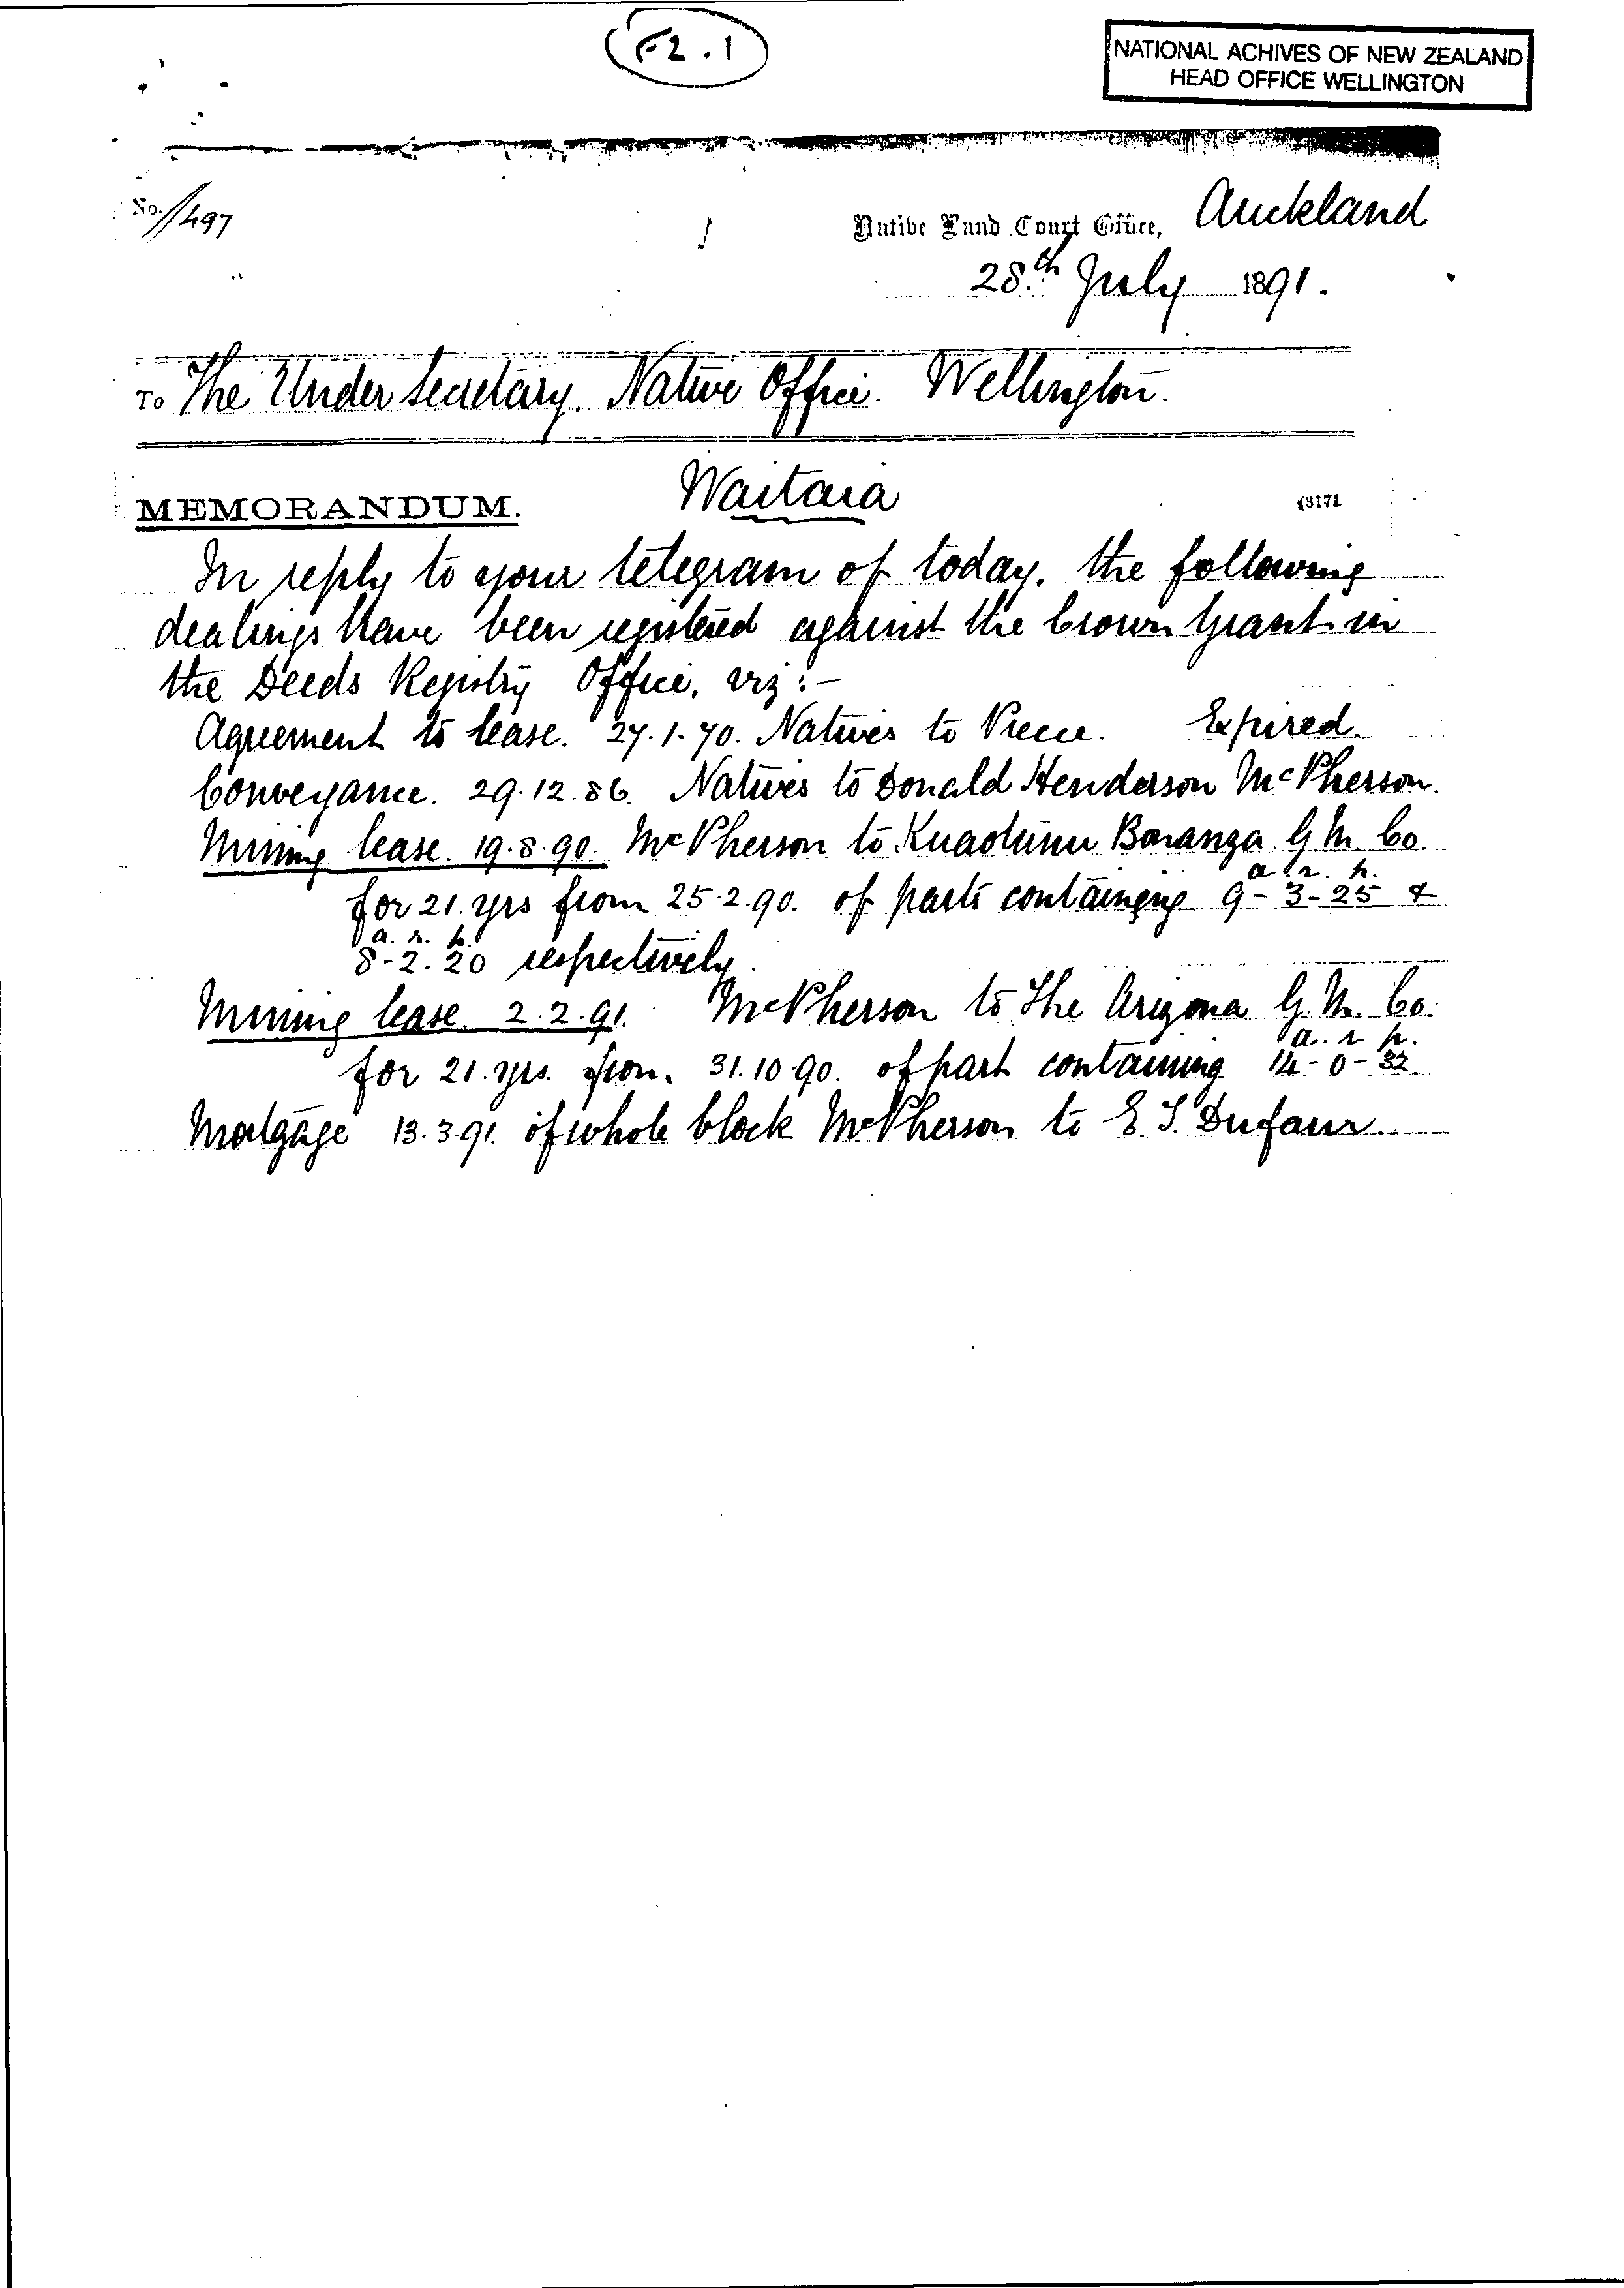 F2.1
NATIONAL ACHIVES OF NEW ZEALAND
HEAD OFFICE WELLINGTON
No. 1497
Native Land Court Office, Auckland
28th July 1891.
To The Under Secretary. Native Office. Wellington.
MEMORANDUM. Waitaia
In reply to your telegram of today, the following
dealings have been registered against the Crown Grant in
the Deeds Registry Office, viz:-
Agreement to lease. 27.1.70. Natives to Preece. Expired.
Conveyance. 29.12.86. Natives to Donald Henderson McPherson.
Mining lease. 19.8.90. McPherson to Kuaotunu Bonanza G. M. Co.
a. r. p.
for 21. yrs from 25.2.90. of parts containing 9-3-25 &
a. r. p.
8-2.20 respectively.
Mining lease. 2.2.91. McPherson to The Arizona G. M. Co.
a. r. p.
for 21. yrs. from. 31.10.90. of part containing 14-0-32.
Mortgage 13.3.91. of whole block McPherson to E. T. Dufaur.